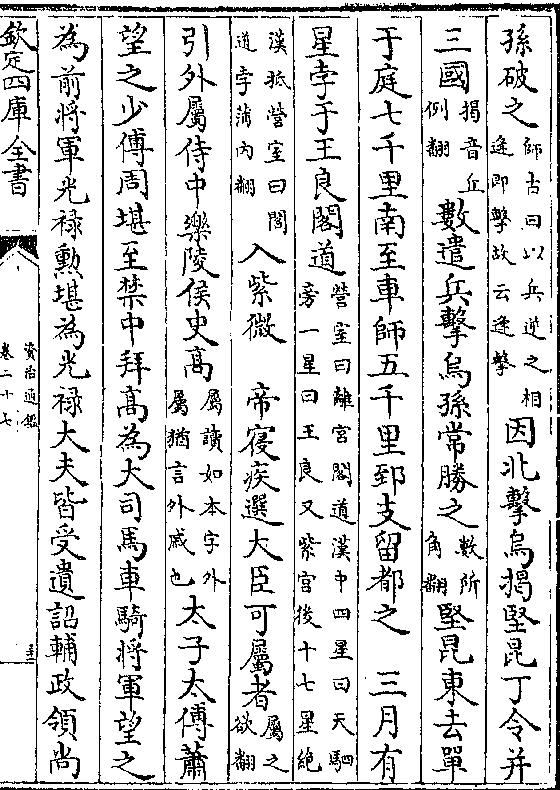 孫破之師古曰以兵逆之相逢即擊故云逢擊因北擊烏揭堅昆丁令并
三國揭音丘例翻數遣兵擊烏孫常勝之數所角翻堅昆東去單
于庭七千里南至車師五千里郅支留都之 三月有
星孛于王良閣道營室曰離宮閣道漢中四星曰天駟旁一星曰王良又紫宮後十七星絶
漢抵營室曰閣道孛蒲内翻入紫微 帝寝疾選大臣可屬者屬之欲翻
引外屬侍中樂陵侯史高屬讀如本字外屬猶言外戚也太子太傅蕭
望之少傅周堪至禁中拜高為大司馬車騎將軍望之
為前將軍光禄勲堪為光禄大夫皆受遺詔輔政領尚
欽定四庫全書
資治通鑑
卷二十七